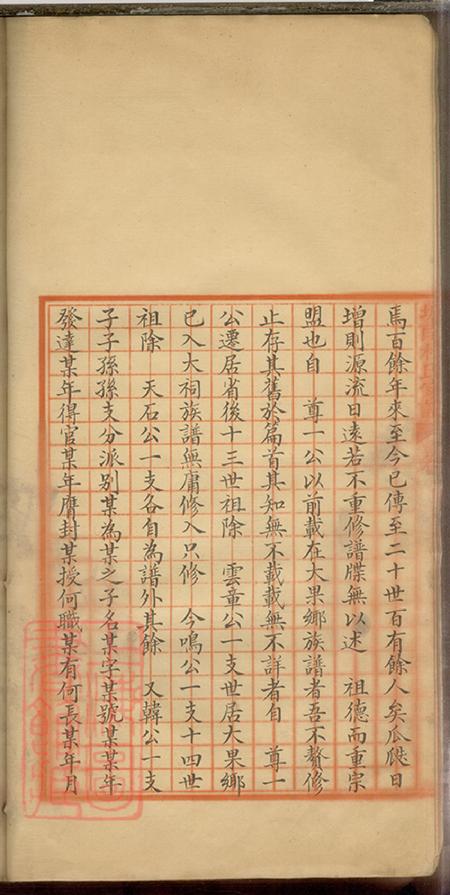 焉百餘年來至今已傳至二十世百有餘人矣瓜瓞日
增則源流日遠若不重修譜牒無以述　祖德而重宗
盟也自　尊一公以前載在大果鄉族譜者吾不贅修
止存其舊於篇首其知無不載載無不詳者自　尊一
公遷居省後十三世祖除　雲章公一支世居大果鄉
已入大祠族譜無庸修入只修　今鳴公一支十四世
祖除　天石公一支各自為譜外其餘　又韓公一支
子子孫孫支分派別某為某之子名某字某號某某年
發達某年得官某年膺封某授何職某有何長某年月